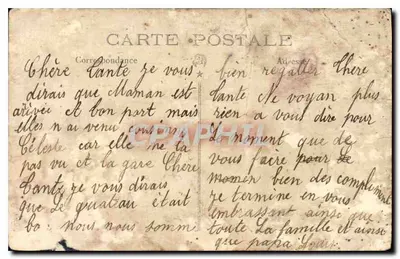 CARTE POSTALE
Correspondance
Adresse
Chère Tante je vous
dirais que Maman est
arivée et bon port mais
elles n'ai venu toujours
Céleste car elle ne la
pas vu et la gare Chère
Tante je vous dirais
que Le guateau était
bo: nous nous somm
bien régaller Chere
tante Ne voyan plus
rien a vous dire pour
Le moment que de
vous faire pour Le
bien des compliment
je termine en vous
embrassant ainsi que
toute La famille et ainsi
que papa Louis